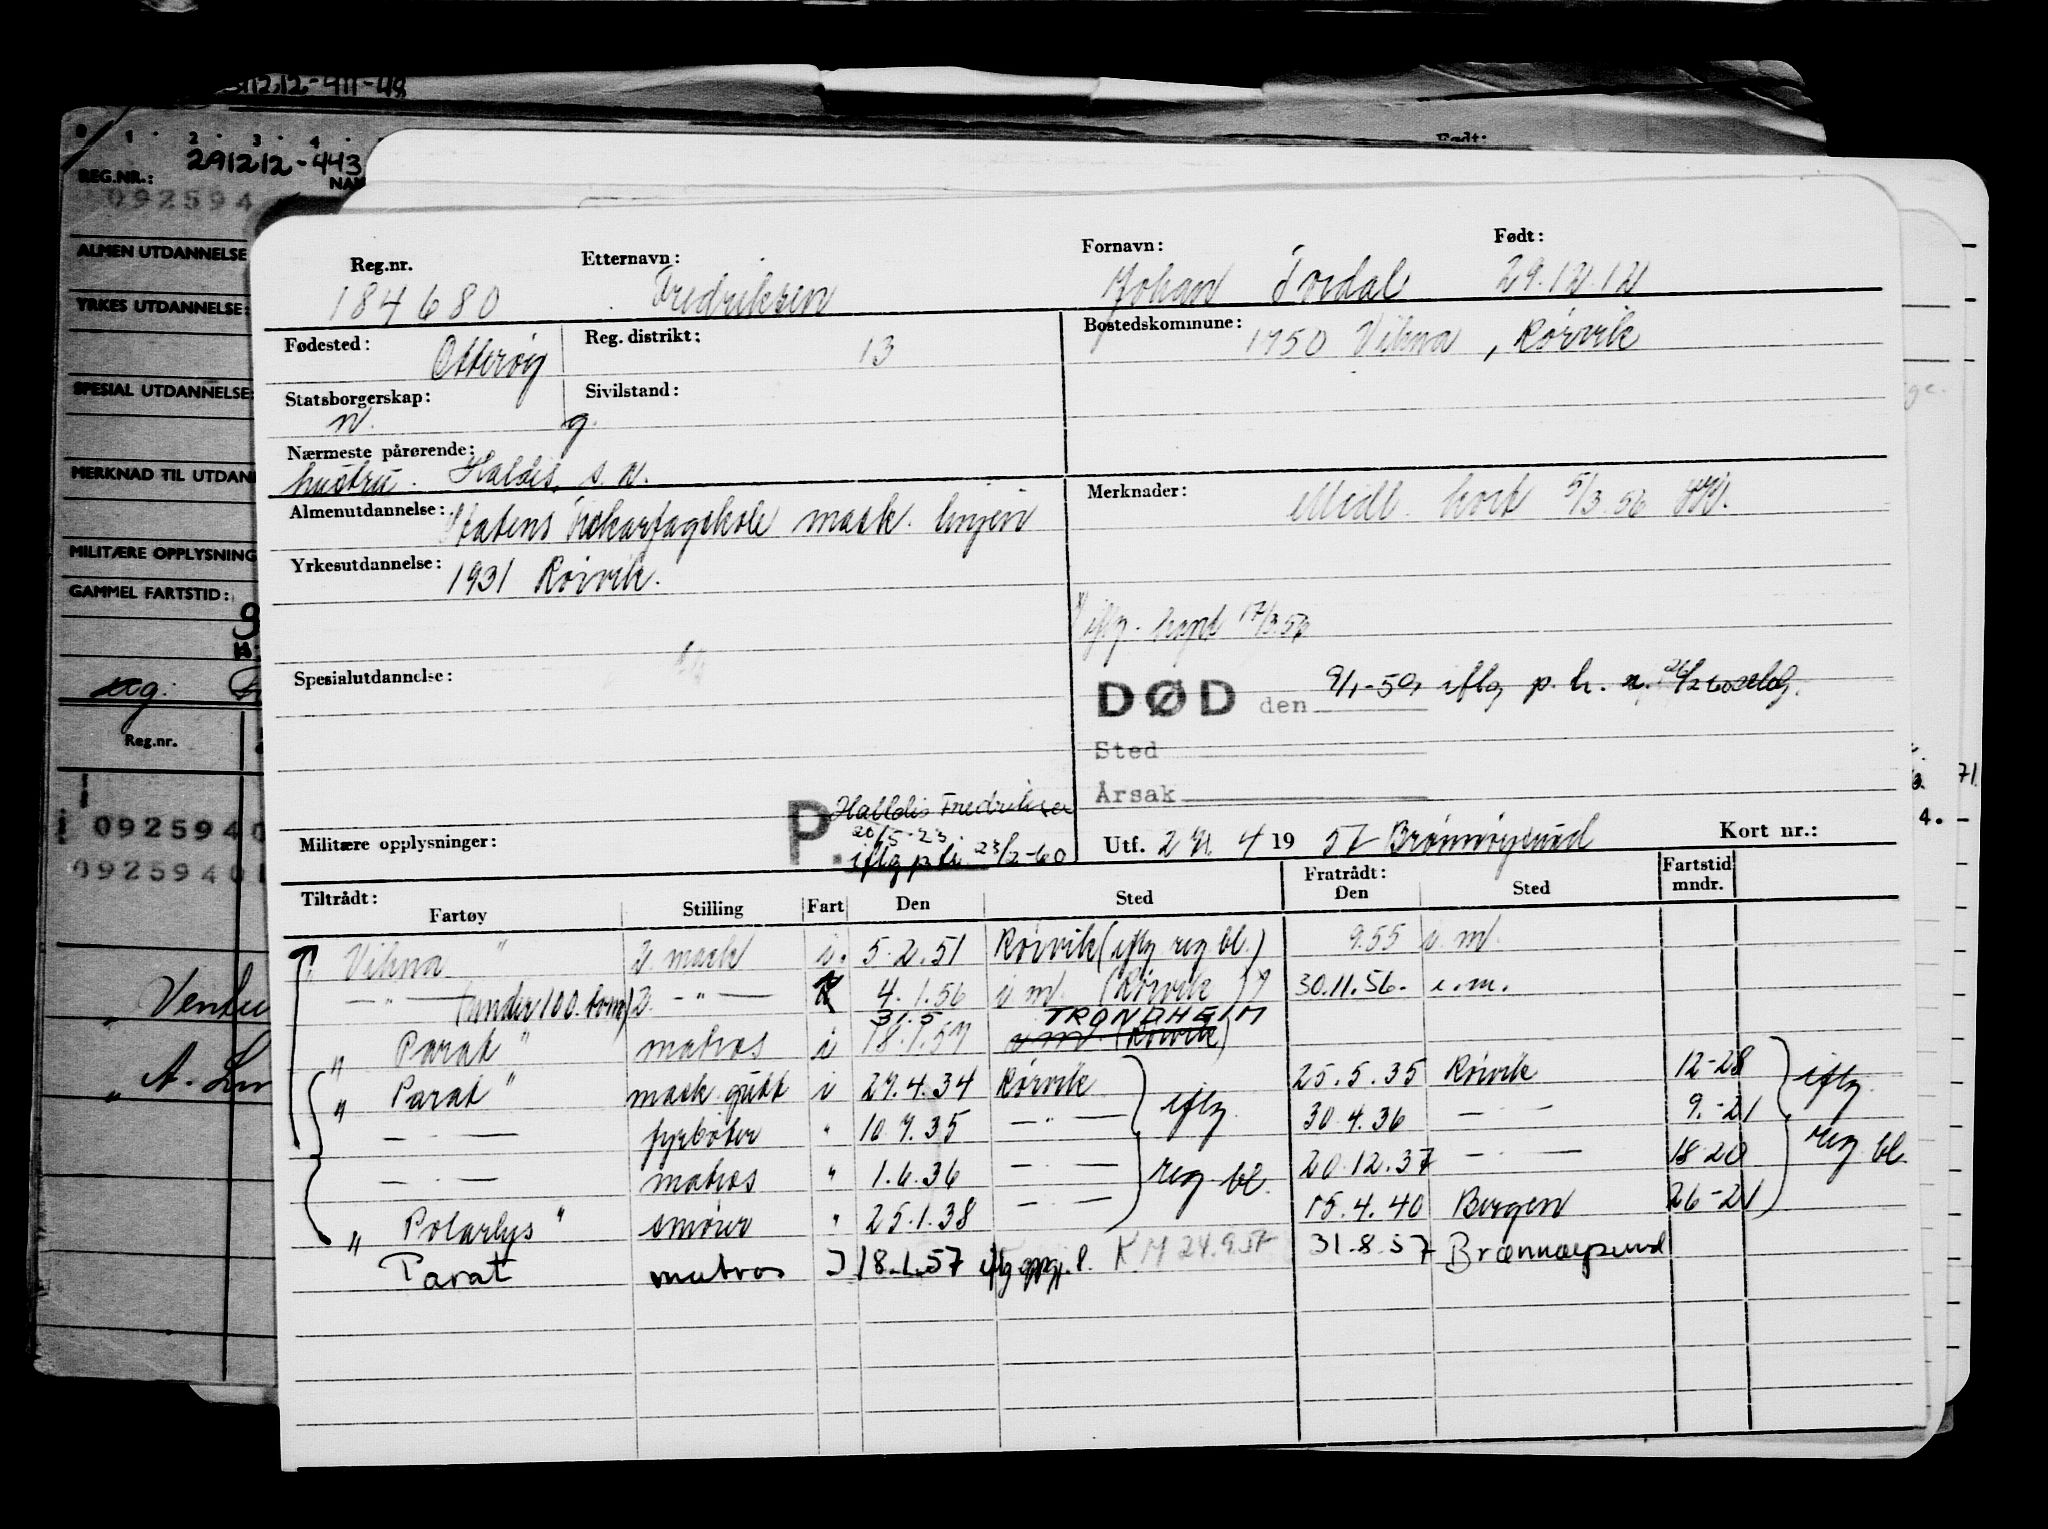 291212-443
0 1 2 3 4
REG.NR.:
092594
ALMEN UTDANNELSE
YRKES UTDANNELSE:
SPESIAL UTDANNELSE:
MERKNAD TIL UTDAN
MILITÆRE OPPLYSNING
GAMMEL FARTSTID:
Reg.nr.
0925940
09259401
Født:
Reg.nr. Etternavn: Fornavn: Født:
184680 Fredriksen Johan Tordal 29.12.12
Fødested: Otterøy Reg. distrikt: 13 Bostedskommune: 1750 Vikna, Rørvik
Statsborgerskap: n. Sivilstand: g.
Nærmeste pårørende:
hustru. Haldis, s.a.
Almenutdannelse: Statens Fiskarfagskole mask. linjen
Merknader: Midl. kort 5/3.56
Yrkesutdannelse: 1931 Rørvik.
iflg. 17/3.56
Spesialutdannelse:
DØD den 9/1-59, iflg p. h. n.
Sted
Årsak
P. Halldis Fredriksen
20/5-23
iflg p.h. 23/2-60
Militære opplysninger:
Utf. 2/4 1957 Brønnøysund Kort nr.:
Tiltrådt: Fartøy Stilling Fart Den Sted Fratrådt: Den Sted Fartstid mndr.
" Vikna " 2. mask i. 5.2.51 Rørvik (iflg reg bl.) 9.55 i m.
— " — (under 100. tonn) 2. — " — 4.1.56 i m. (Rørvik) 30.11.56. i.m.
31.5 TRONDHEIM
" Parat " matros i 18.1.57 i m. (Rørvik)
" Parat " mask.gutt i 27.4.34 Rørvik 25.5.35 Rørvik 12-28
— " — fyrbøter " 10.7.35 — " — iflg. 30.4.36 — " — 9.-21 iflg.
— " — matros " 1.6.36 — " — reg bl. 20.12.37 — " — 18 20 reg bl.
" Polarlys " smører " 25.1.38 — " — 15.4.40 Bergen 26-21
Parat matros 18.1.57 iflg oppgj. KM 24.9.57 31.8.57 Brønnøysund